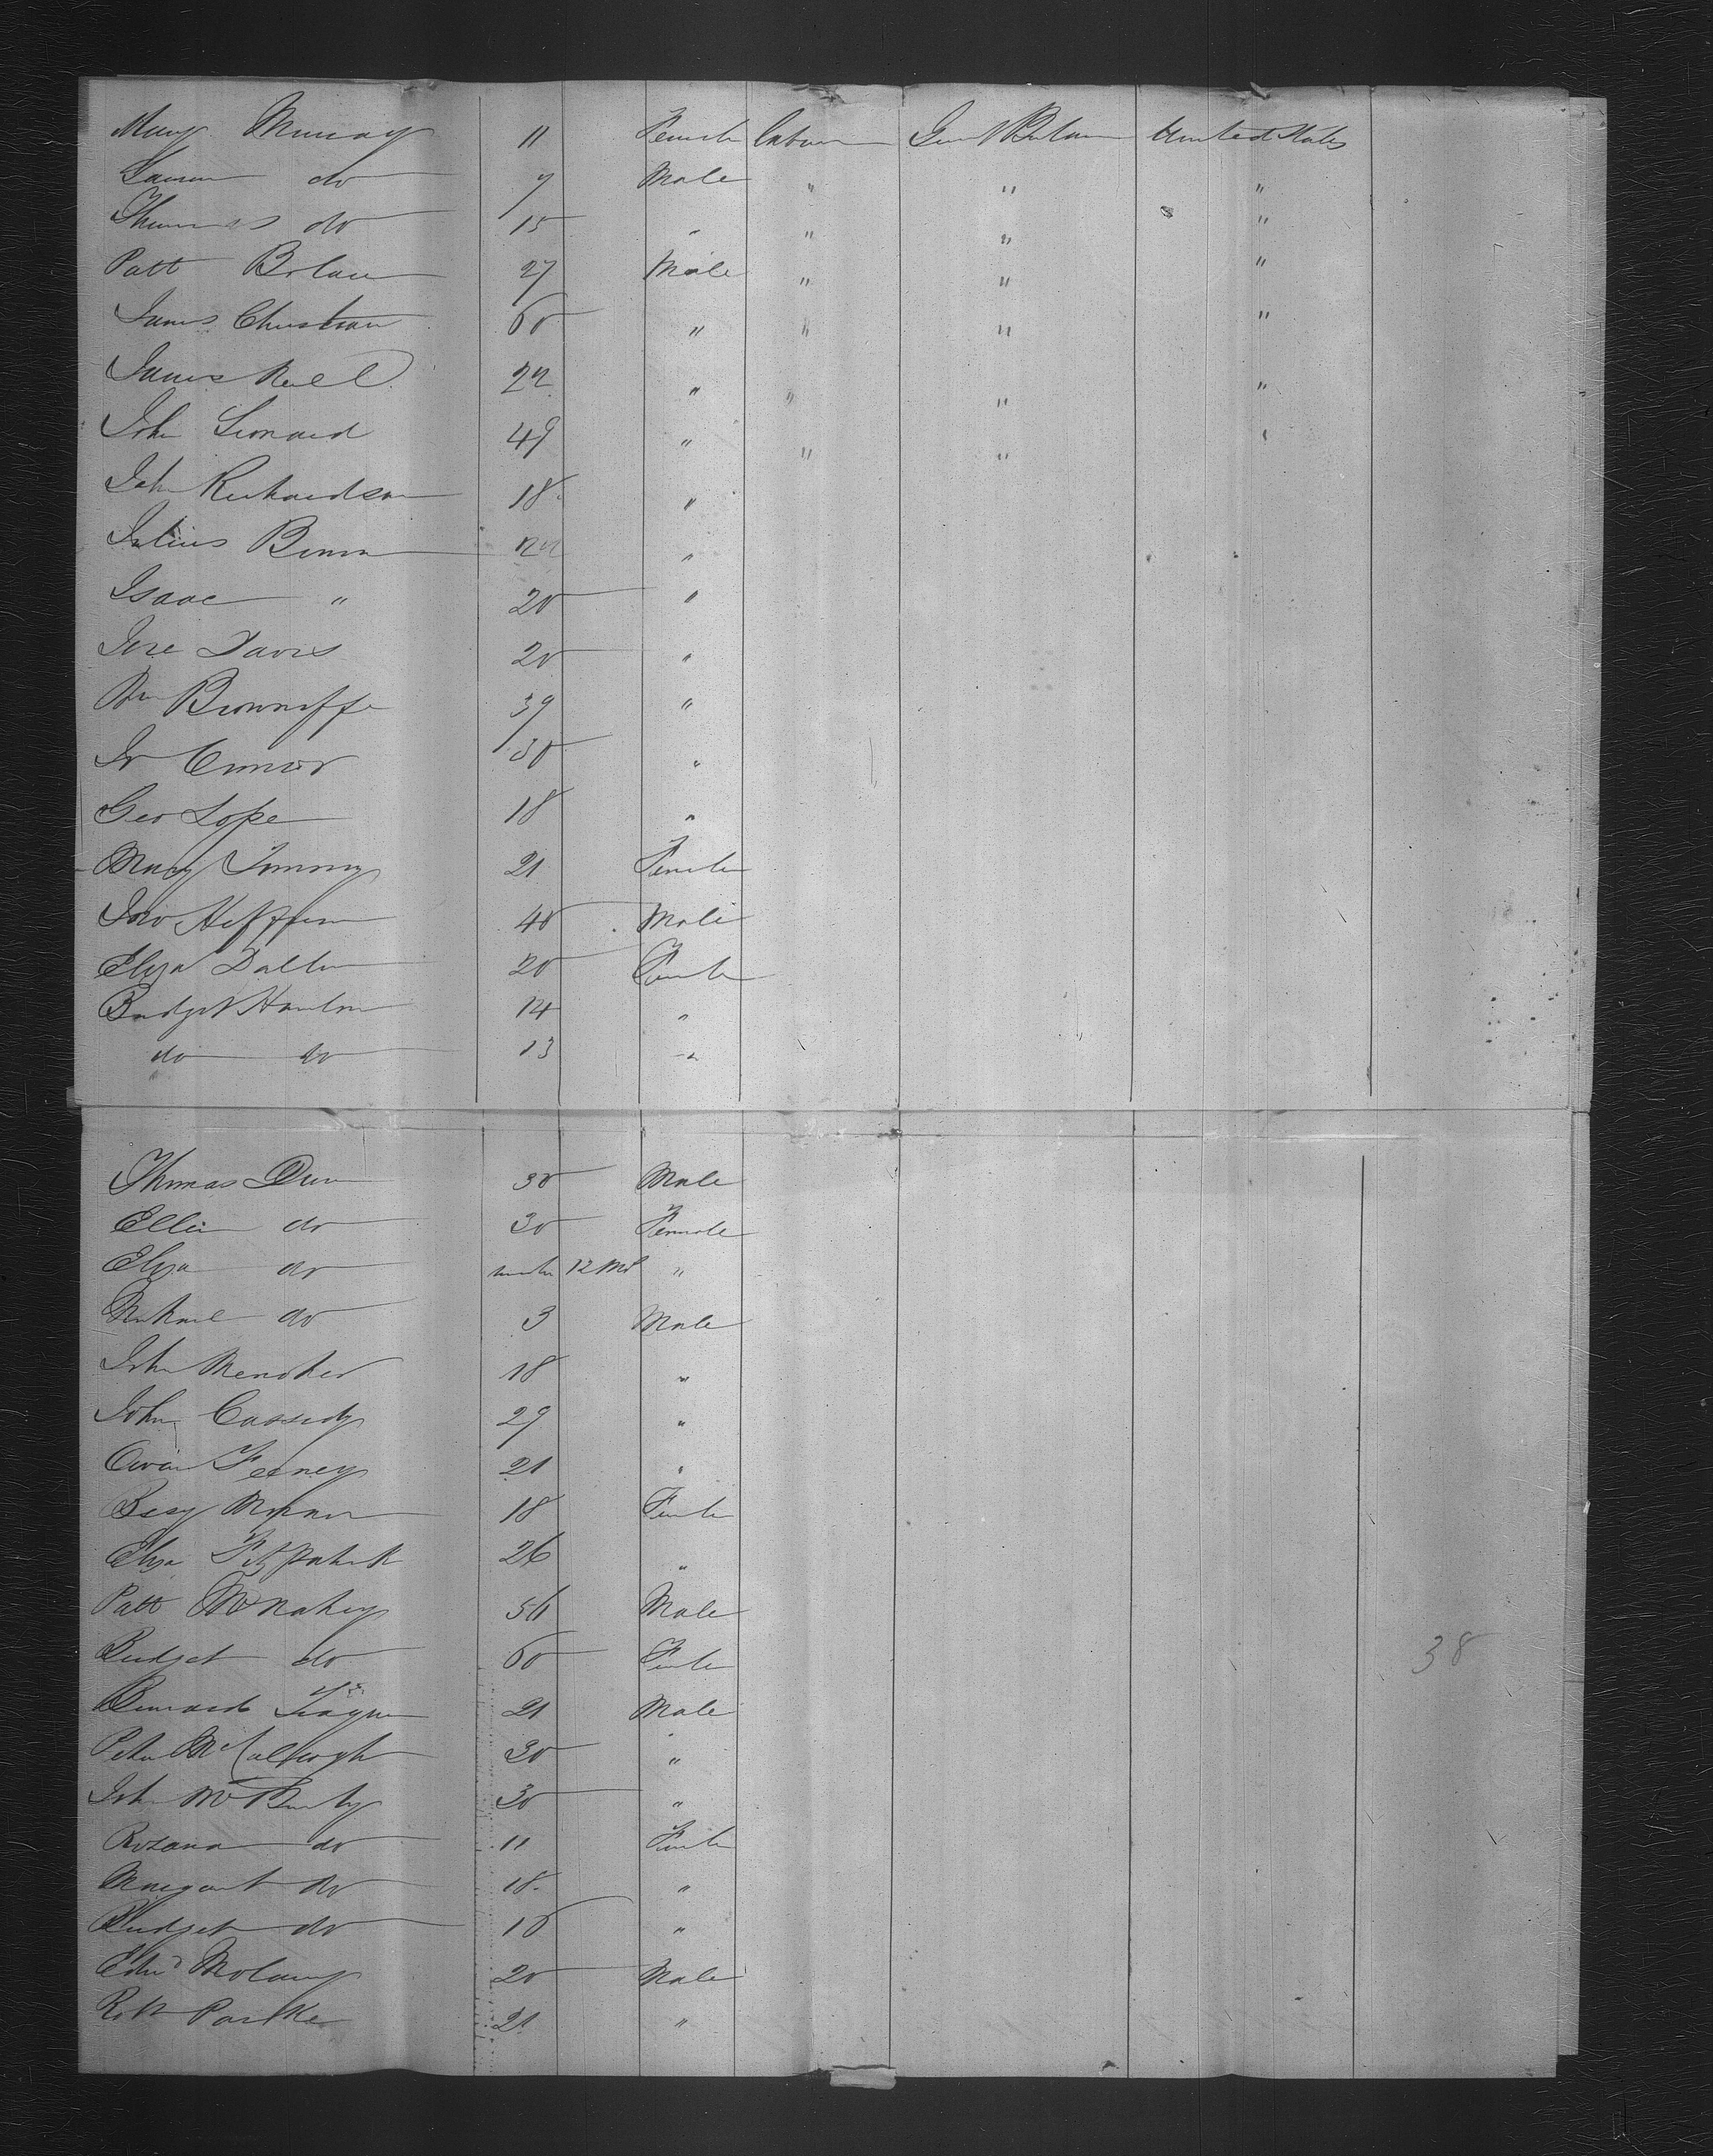 Mary Murray 11 Female Labour Great Britain United States
do 7 Male " " "
Thomas do 15 " " " "
Patt Bolan 27 Male " " "
James Christian 60 " " " "
James Neill 22 " " " "
John Leonard 49 " " " "
John Richardson 18 "
Julius 22 "
Isaac " 20 "
Davis 20 "
Wm 39 "
Jo Connor 30 "
Geo Lope 18 "
Mary 21 Female
Jno Heffern 40 Male
Eliza Dallon 20 Female
Bridget Hanlon 14 "
do do 13 "
Thomas Dun 30 Male
Ellen do 30 Female
Eliza do under 12 Mo "
Michael do 3 Male
John 18 "
John Cassidy 29 "
Owen Feeney 21 "
18 Female
Eliza Fitzpatrick 26 "
Patt 56 Male
Bridget do 60 Female
Bernard 21 Male
Peter McCullough 30 "
John 30 "
38
Rosana do 11 Female
Margaret do 18 "
Bridget do 10 "
Edwd 20 Male
Robt Parke 21 "